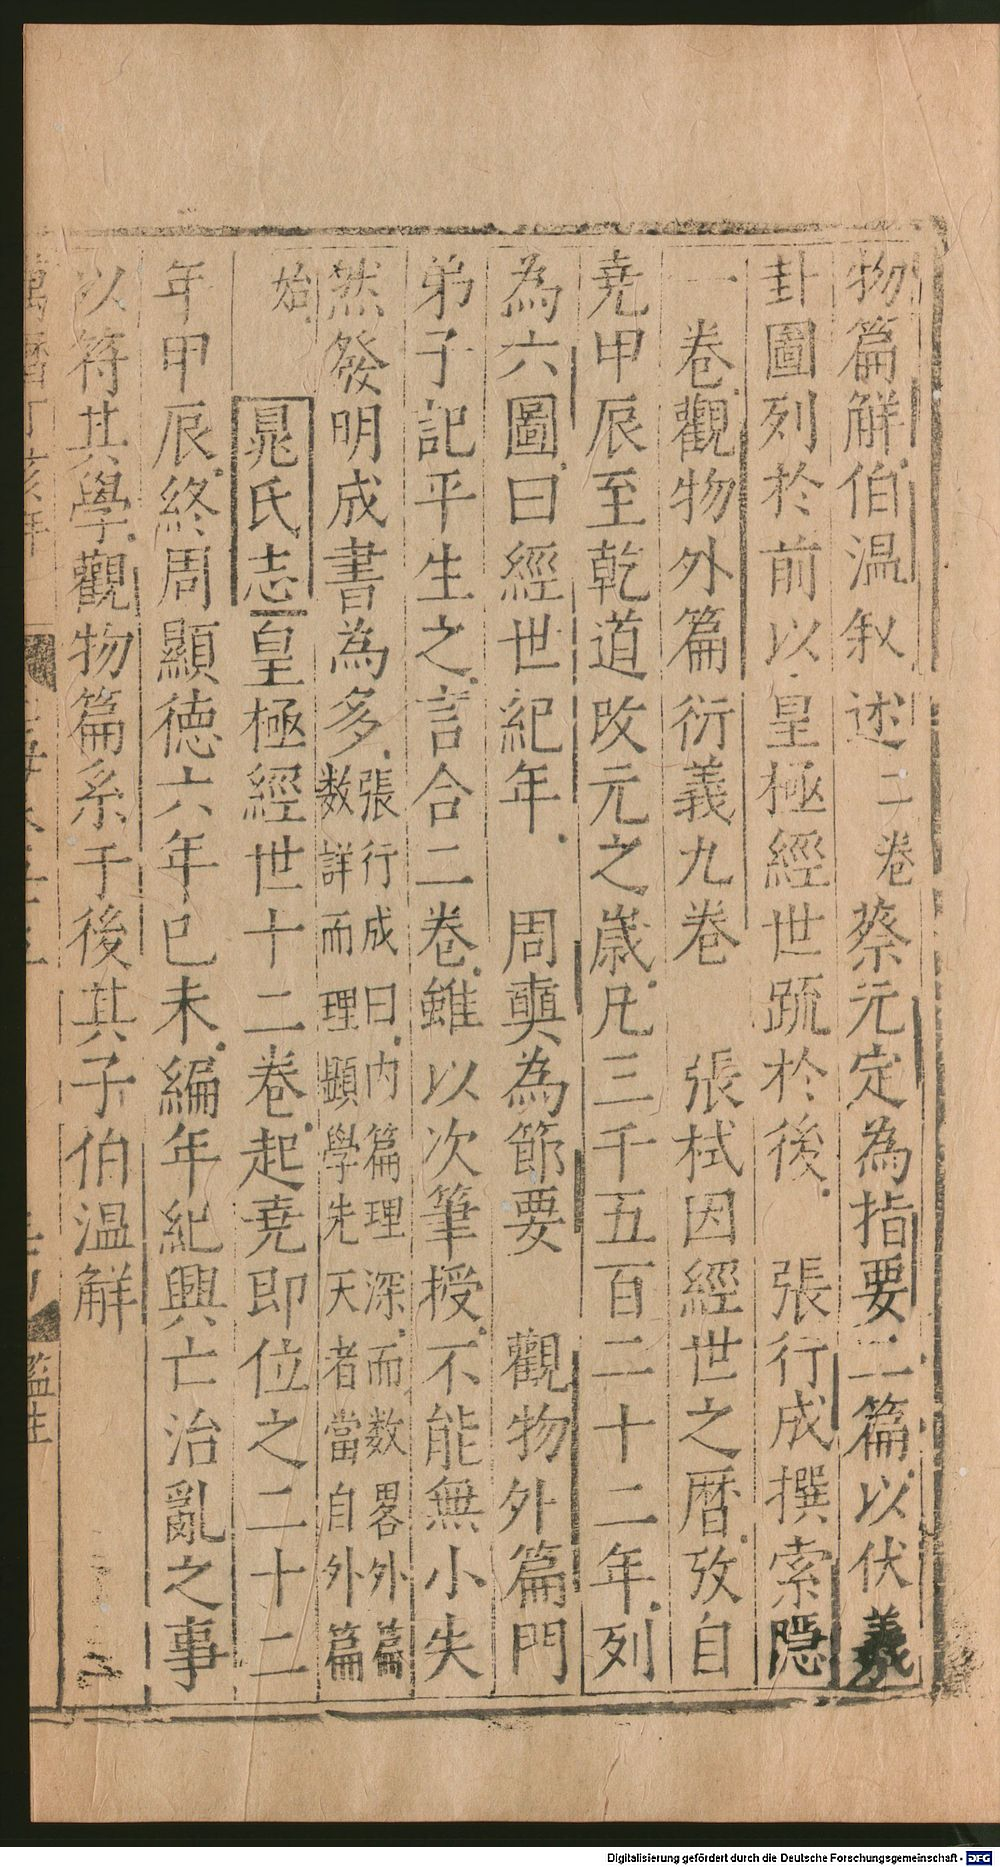 物篇解伯温叙述二卷蔡元定為指要二篇以伏羲
卦圖列於前以皇極經世䟽於後　張行成撰索隠
一卷觀物外篇衍義九卷　張栻因經世之暦攷自
尭甲辰至乾道改元之歳凡三千五百二十二年列
為六圖曰經世紀年　周奭為節要　觀物外篇門
弟子記平生之言合二卷雖以次筆授不能無小失
然發明成書為多張行成曰内篇理深而数畧外篇
数詳而理顯學先天者當自外篇
始　晁氏志皇極經世十二卷起尭即位之二十二
年甲辰終周顯徳六年已未編年紀興亡治亂之事
以符其學觀物篇系于後其子伯温解
監生
Digitalisierung gefördert durch die Deutsche Forschungsgemeinschaft - DFG